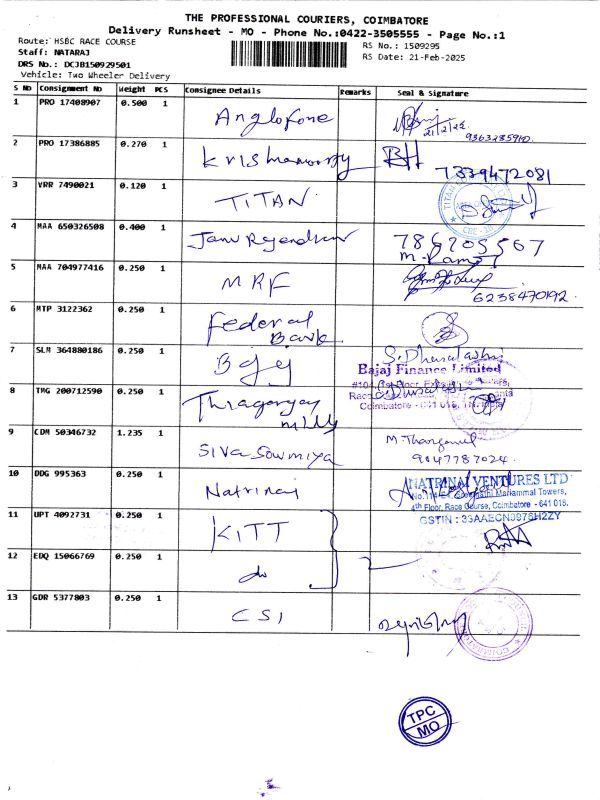 THE PROFESSIONAL COURIERS, COIMBATORE
Delivery Runsheet - MO - Phone No.:0422-3505555 - Page No.:1
Route: HSBC RACE COURSE
RS No.: 1509295
Staff: NATARAJ
RS Date: 21-Feb-2025
DRS No.: DCJB150929501
Vehicle: Two Wheeler Delivery
S No Consignment No Weight PCS Consignee Details Remarks Seal & Signature
1 PRO 17408907 0.500 1 Anglofone
21/2/25
9363285910
2 PRO 17386885 0.270 1 Krishnamoorthy 7339472081
3 VRR 7490021 0.120 1 TITAN
4 MAA 650326508 0.400 1 786205567
5 MAA 704977416 0.250 1 MRF
6238470192
6 MTP 3122362 0.250 1 Federal Bank
7 SLM 364880186 0.250 1
Bajaj Finance Limited
8 TMG 200712590 0.250 1
Coimbatore - 641 018,
9 CDM 50346732 1.235 1 Siva Sowmiya
9047787024
10 DDG 995363 0.250 1 Natrinai
NATRINAI VENTURES LTD
Mariammal Towers,
4th Floor, Race Course, Coimbatore - 641 018.
11 UPT 4092731 0.250 1 KITT
12 EDQ 15066769 0.250 1 do
13 GDR 5377803 0.250 1 CSI
TPC
MO